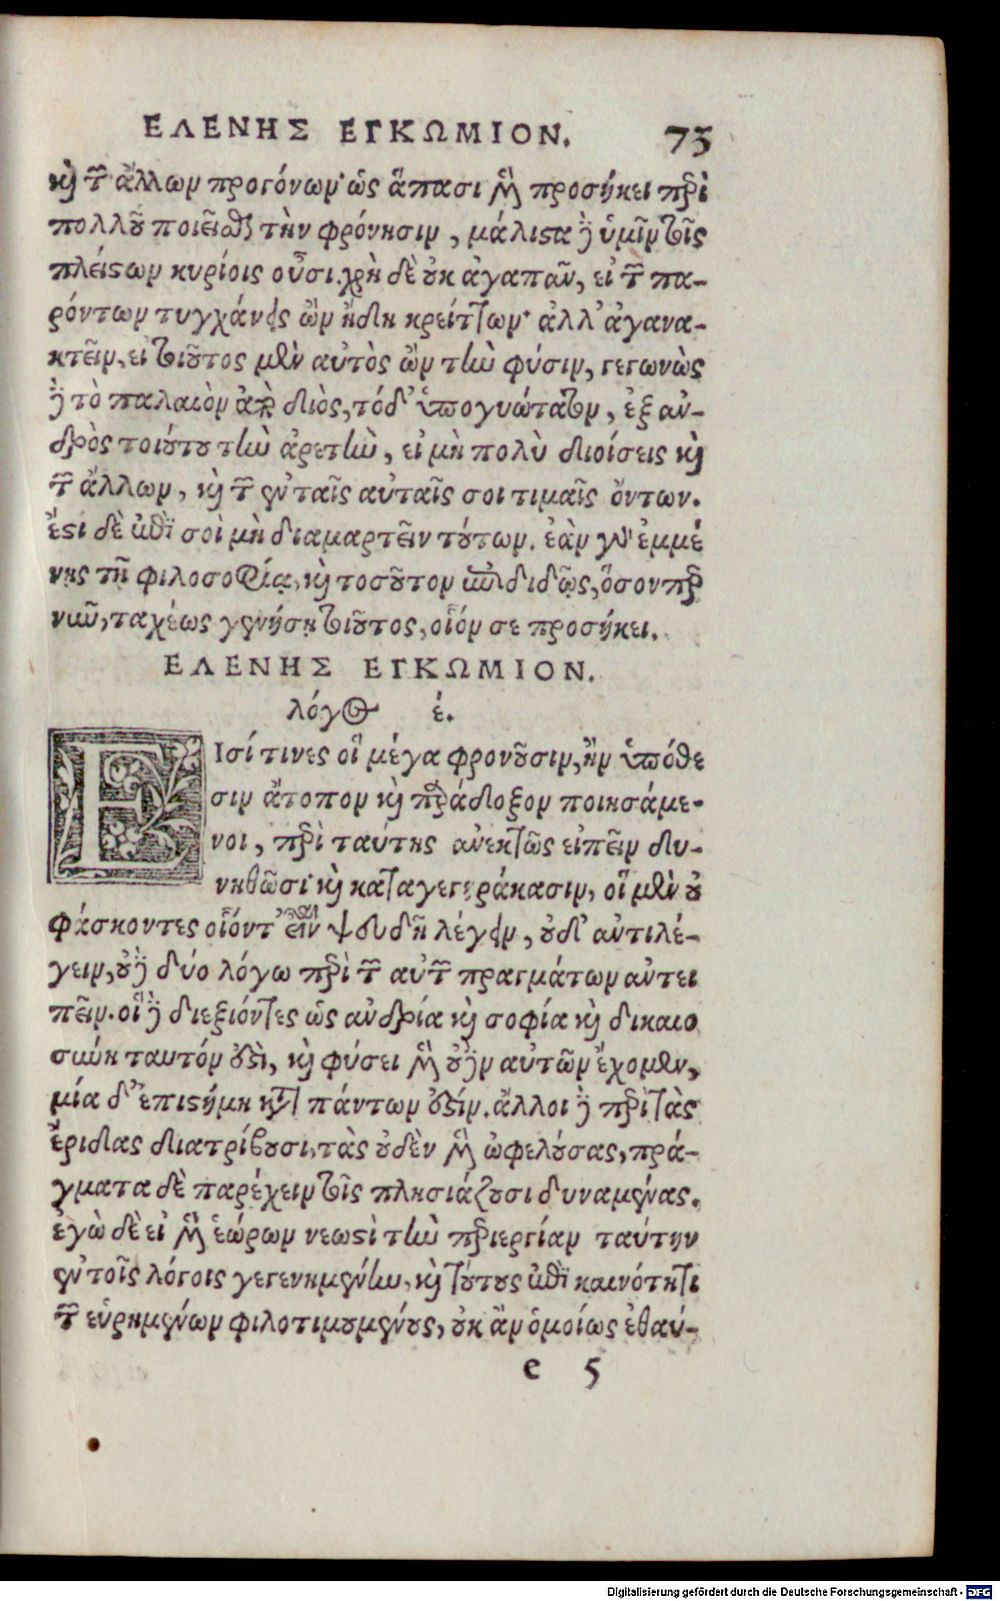 ΕΛΕΝΗΣ ΕΓΚΩΜΙΟΝ. 73
καὶ τῶν ἄλλων προγόνων· ὡς ἅπασι μὲν προσήκει περὶ
πολλοῦ ποιεῖσθαι τὴν φρόνησιν, μάλιστα δ̓ ὑμῖν τοῖς
πλείστων κυρίοις οὖσι. χρὴ δὲ οὐκ ἀγαπᾶν, εἰ τῶν πα-
ρόντων τυγχάνεις ὢν ἤδη κρείττων· ἀλλ' ἀγανα-
κτεῖν, εἰ τοιοῦτος μὲν αὐτὸς ὢν τὴν φύσιν, γεγωνὼς
δὲ τὸ παλαιὸν ἀπὸ διὸς, τόδ' ὑπογυώτατον, ἐξ ἀν-
δρὸς τοιούτου τὴν ἀρετὴν, εἰ μὴ πολὺ διοίσεις καὶ
τῶν ἄλλων, καὶ τῶν ἐν ταῖς αὐταῖς σοι τιμαῖς ὄντων.
ἔστι δὲ ἐπὶ σοὶ μὴ διαμαρτεῖν τούτων. ἐὰν γὰρ ἐμμέ
νῃς τῇ φιλοσοφίᾳ, καὶ τοσοῦτον ἐπιδιδῷς, ὅσον περ
νῦν, ταχέως γενήσῃ τοιοῦτος, οἷόν σε προσήκει.
ΕΛΕΝΗΣ ΕΓΚΩΜΙΟΝ.
λόγος έ.
ΕΙσί τινες οἳ μέγα φρονοῦσιν, ἢν ὑπόθε
σιν ἄτοπον καὶ παράδοξον ποιησάμε-
νοι, περὶ ταύτης ἀνεκτῶς εἰπεῖν δυ-
νηθῶσι· καὶ καταγεγηράκασιν, οἳ μὲν οὐ
φάσκοντες οἷόντ' εἶναι ψευδῆ λέγειν, οὐδ' ἀντιλέ-
γειν, οὐδὲ δύο λόγω περὶ τῶν αὐτῶν πραγμάτων ἀντει
πεῖν. οἳ δὲ διεξιόντες ὡς ἀνδρία καὶ σοφία καὶ δικαιο
σύνη ταυτόν ἐστι, καὶ φύσει μὲν οὐδὲν αὐτῶν ἔχομεν,
μία δ' ἐπιστήμη κατὰ πάντων ἐστίν. ἄλλοι δὲ περὶ τὰς
ἔριδας διατρίβουσι, τὰς οὐδὲν μὲν ὠφελούσας, πρά-
γματα δὲ παρέχειν τοῖς πλησιάζουσι δυναμένας.
ἐγὼ δὲ εἰ μὲν ἑώρων νεωστὶ τὴν περιεργίαν ταύτην
ἐν τοῖς λόγοις γεγενημένην, καὶ τούτους ἐπὶ καινότητι
τῶν εὑρημένων φιλοτιμουμένους, οὐκ ἂν ὁμοίως ἐθαύ-
e 5
Digitalisierung gefördert durch die Deutsche Forschungsgemeinschaft - DFG